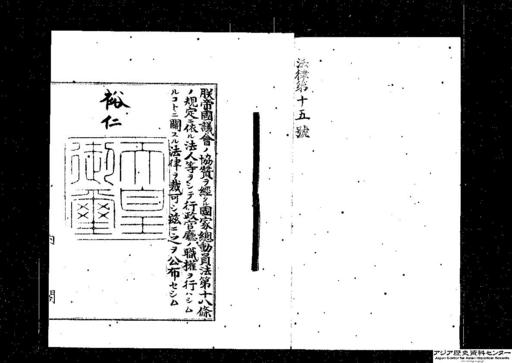 法律第十五號
朕帝國議會ノ協贊ヲ經タル國家總動員法第十八條
ノ規定ニ依ル法人等ヲシテ行政官廳ノ職權ヲ行ハシム
ルコトニ關スル法律ヲ裁可シ茲ニ之ヲ公布セシム
裕仁
天皇
御璽
内閣
アジア歴史資料センター
Japan Center for Asian Historical Records